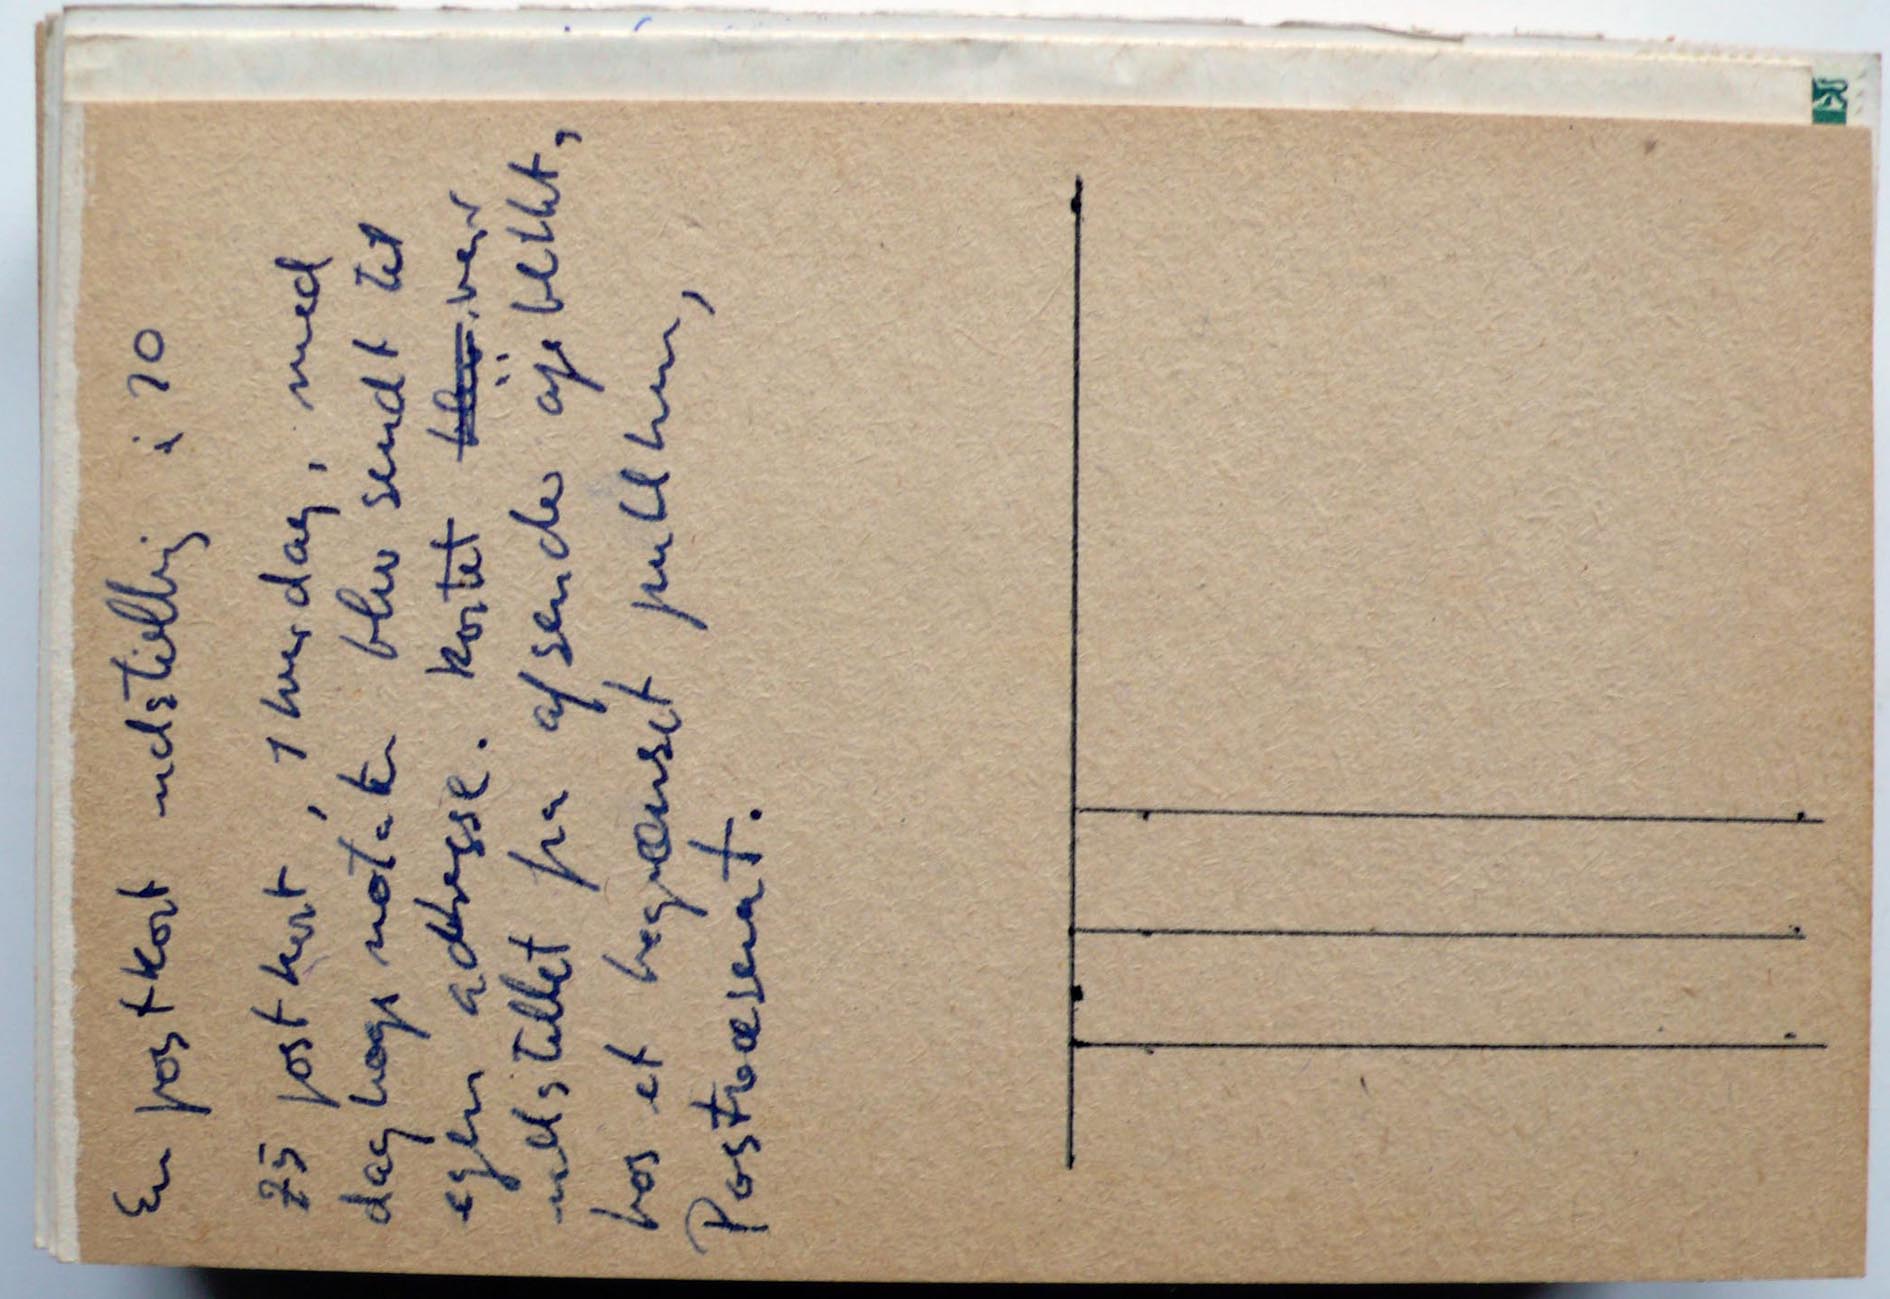 En postkort udstilling i 70
75 postkort, 1 hver dag, med
dagbogs notater blev sendt til
egen adresse. kortet blev var
udstillet fra afsender ojeblikket,
hos et begrænset publikum,
Postvæsenet.